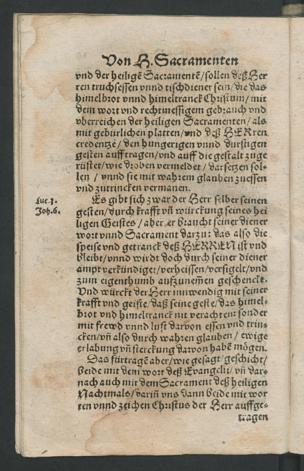 Von H. Sacramenten
vnd der heiligē Sacramentē/sollen deß Her
ren truchsessen vnnd tischdiener sein/die das
himelbrot vnnd himeltranck Christum/mit
dem wort vnd rechtmessigem gebrauch vnd
vberreichen der heiligen Sacramenten/als
mit gebürlichen platten/vnd deß HERren
credentze/den hungerigen vnnd durstigen
gesten aufftragen/vnd auff die gestalt züge
rüstet/wie droben vermeldet/darsetzen sol
len/vnnd sie mit wahrem glauben zuessen
vnd zutrincken vermanen.
Es gibt sich zwar der Herr selber seinen
Luc.1.
gesten/durch krafft vñ würckung seines hei
Joh.6.
ligen Geistes/aber er braucht seiner diener
wort vnnd Sacrament darzu: das also die
speise vnd getranck deß HERREN ist vnd
bleibt/vnnd wirdt doch durch seiner diener
ampt verkündiget/verheissen/versigelt/vnd
zum eigenthumb aufzunemēn geschenckt.
Vnd würckt der Herr inwendig mit seiner
krafft vnd geiste/daß seine geste/das himel-
brot vnd himeltranck nit verachten/sonder
mit frewd vnnd lust darvon essen vnd trin-
cken/vñ also durch wahren glauben/ewige
erlabung vñ sterckung darvon habē mögen.
Das fürtragē aber/wie gesagt/geschicht/
Beide mit dem wort deß Evangelii/vñ dar-
nach auch mit dem Sacrament deß heiligen
Nachtmals/dariñ vns dann beide mit wor
ten vnnd zeichen Christus der Herr auffge-
tragen